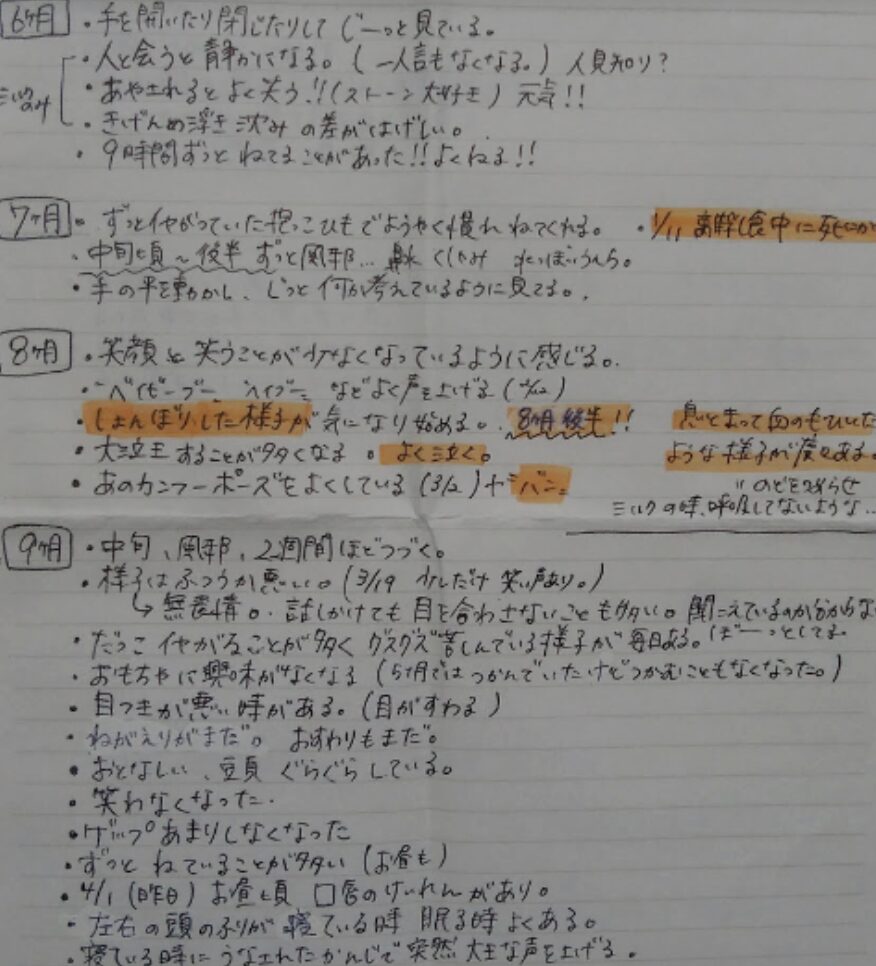 6ヶ月 ・手を開いたり閉じたりして じーっと見ている。
・人と会うと静かになる。(一人言もなくなる。) 人見知り?
・あやされるとよく笑う!!(ストーン大好き) 元気!!
・きげんの浮き沈みの差がはげしい。
・9時間ずっとねてることがあった!!よくねる!!
7ヶ月 ・ずっとイヤがっていた抱っこひもでようやく慣れ ねてくれる。 ・1/11 離解食中に死にか
・中旬頃~後半 ずっと風邪… 鼻水 くしゃみ
・手の平を動かし、じっと何か考えているように見てる。
8ヶ月 ・笑顔と笑うことが少なくなっているように感じる。
・"ベイビーブー" ヘイブー" などよく声を上げる
・しょんぼりした様子が気になり始める。 8ヶ月後半!! 息とまって白めもひいた
・大泣きすることが多くなる。よく泣く。 ような様子が度々ある。
・あのカンフーポーズをよくしている (3/2) + "バン" "のどを
ミルクの時、呼吸してないような…
9ヶ月 ・中旬、風邪、2週間ほどつづく。
・様子はふつうか悪い。(3/19 少しだけ 笑い声あり。)
↳ 無表情。話しかけても目を合わさないことも多い。聞こえているのか分からな
・だっこイヤがることが多く グズグズ苦しんでいる様子が毎日ある。ぼーっとしてる
・おもちゃに興味がなくなる (5ヶ月ではつかんでいたけどつかむこともなくなった。)
・目つきが悪い時がある。(目がすわる)
・ねがえりがまだ。 おすわりもまだ。
・おとなしい、頭ぐらぐらしている。
・笑わなくなった。
・ゲップあまりしなくなった
・ずっとねていることが多い (お昼も)
・4/1 (昨日) お昼頃 口唇のけいれんがあり。
・左右の頭のふりが寝ている時 眠る時よくある。
・寝ている時にうなされたかんじで突然大きな声を上げる。